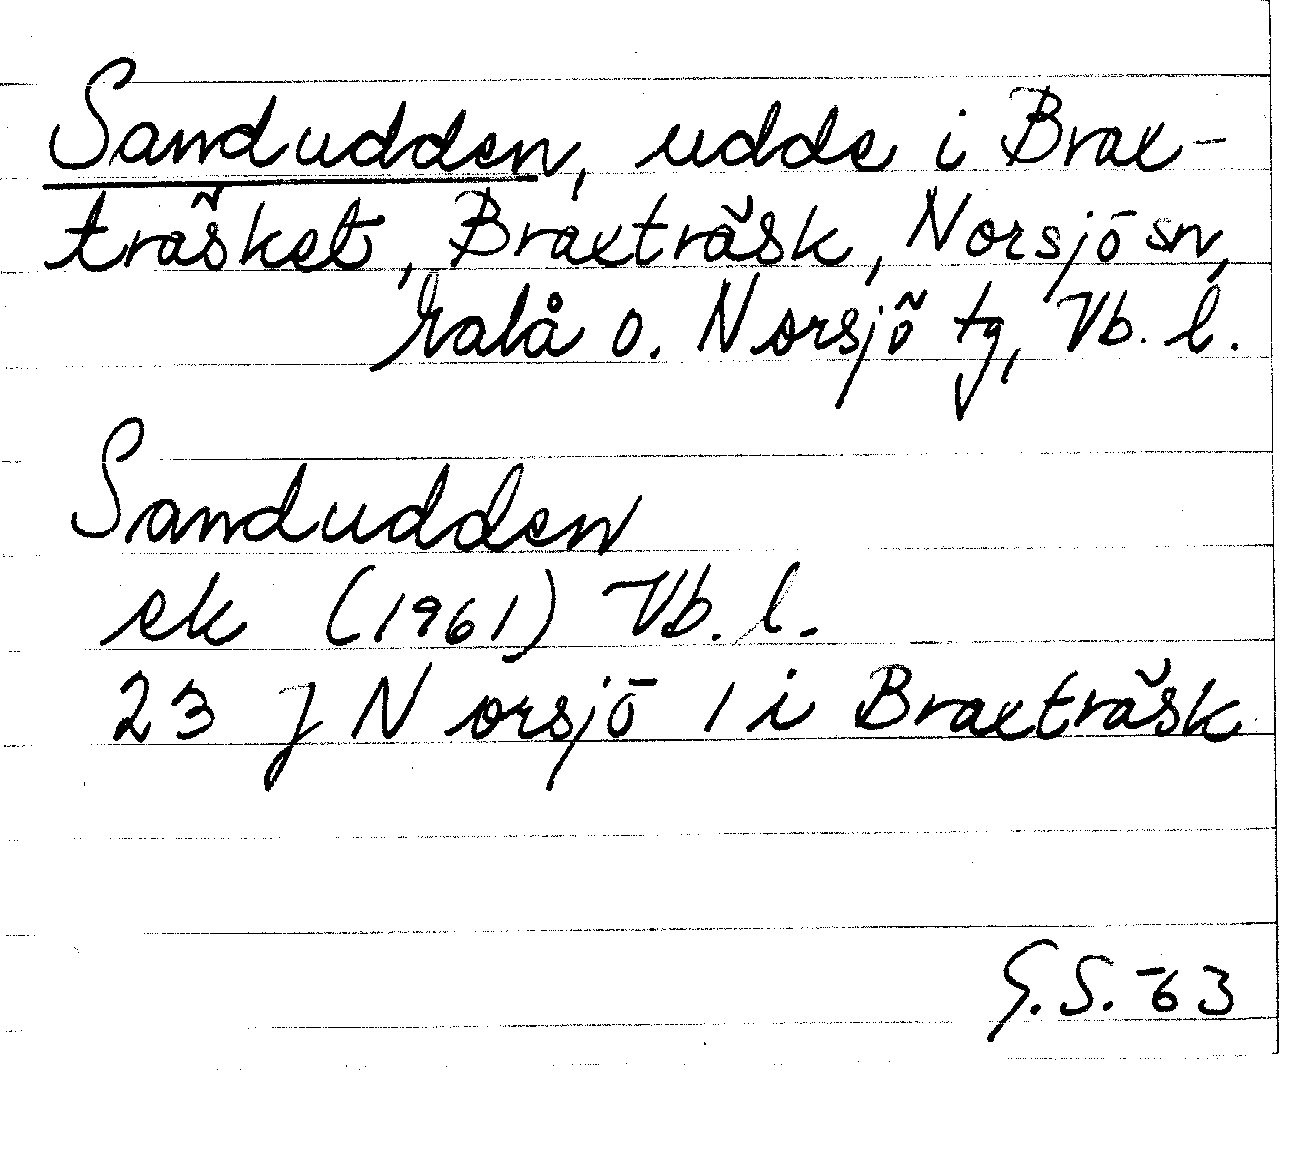 Sandudden, udde i Brax-
träsket, Braxträsk, Norsjö sn,
Malå o. Norsjö tg, Vb. l.
Sandudden
ek (1961) Vb. l.
23 J Norsjö 1 i Braxträsk
G.S. -63